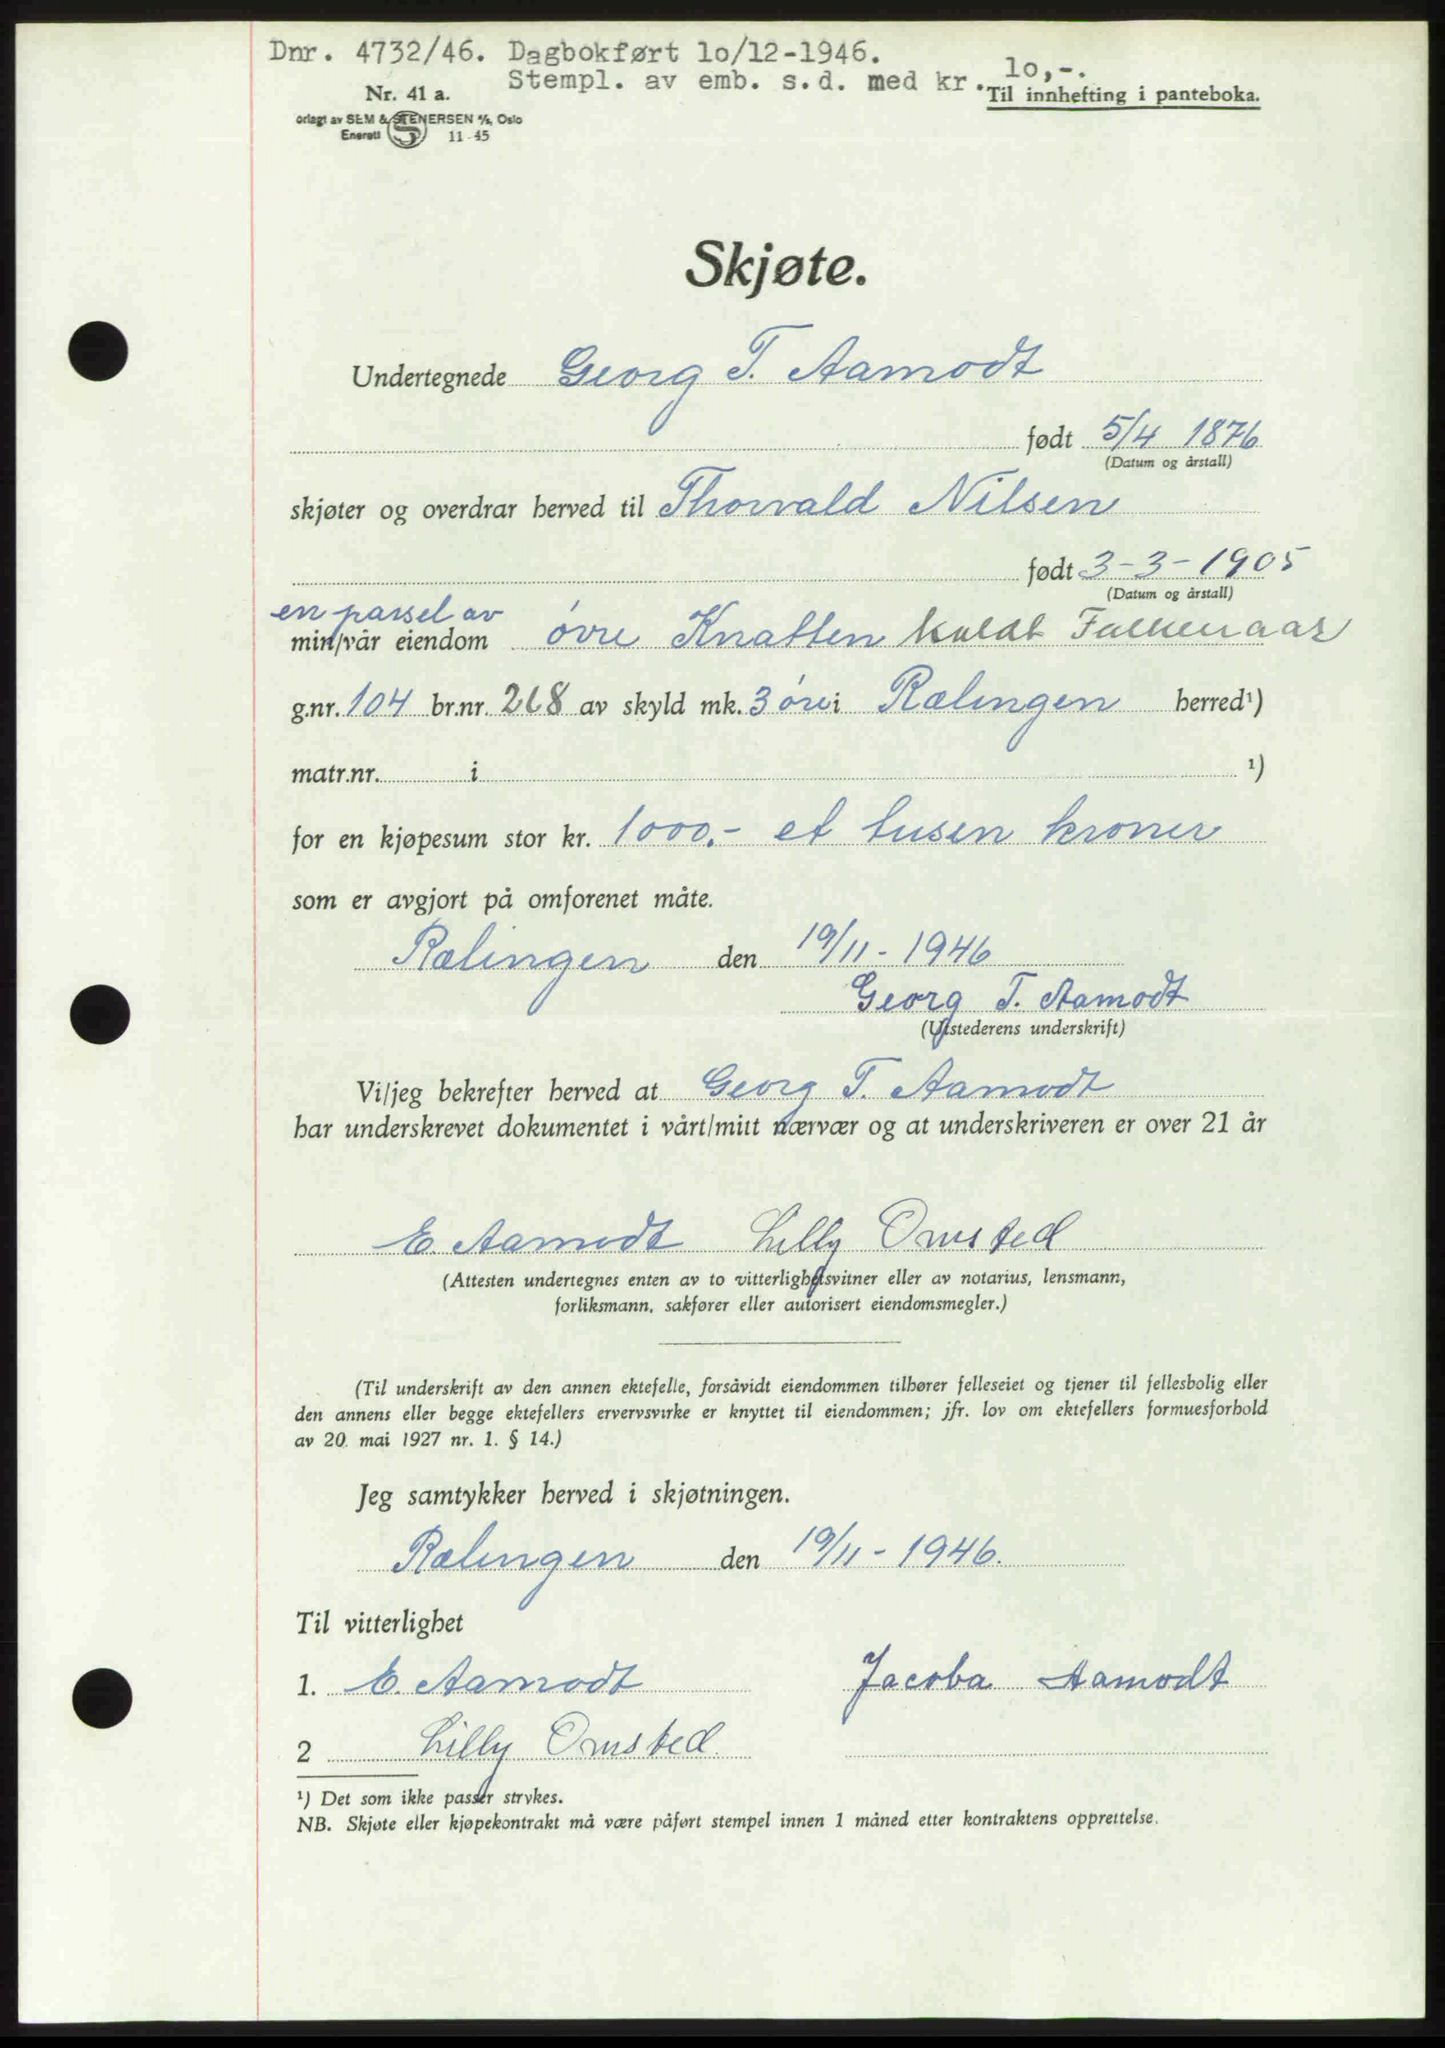 Dnr. 4732/46. Dagbokført 1o/12-1946.
Stempl. av emb. s.d. med kr. 1o,-.
Nr. 41 a.
Til innhefting i panteboka.
orlagt av SEM & STENERSEN A/S, Oslo
Enerett S 11-45
Skjøte.
Undertegnede Georg T. Aamodt
født 5/4 1876
(Datum og årstall)
skjøter og overdrar herved til Thorvald Nilsen
født 3-3-1905
(Datum og årstall)
en parsel av
min/vår eiendom øvre Knatten kaldt
g.nr. 104 br.nr. 268 av skyld mk. 3 øre i Rælingen herred¹)
matr.nr. i ¹)
for en kjøpesum stor kr. 1000.- et tusen kroner
som er avgjort på omforenet måte.
Rælingen den 19/11-1946
Georg T. Aamodt
(Utstederens underskrift)
Vi/jeg bekrefter herved at Georg T. Aamodt
har underskrevet dokumentet i vårt/mitt nærvær og at underskriveren er over 21 år
E. Aamodt Lilly Omsted
(Attesten undertegnes enten av to vitterlighetsvitner eller av notarius, lensmann,
forliksmann, sakfører eller autorisert eiendomsmegler.)
(Til underskrift av den annen ektefelle, forsåvidt eiendommen tilhører felleseiet og tjener til fellesbolig eller
den annens eller begge ektefellers ervervsvirke er knyttet til eiendommen; jfr. lov om ektefellers formuesforhold
av 20. mai 1927 nr. 1. § 14.)
Jeg samtykker herved i skjøtningen.
Rælingen den 19/11-1946.
Til vitterlighet
1. E. Aamodt Jacoba Aamodt
2 Lilly Omsted
¹) Det som ikke passer strykes.
NB. Skjøte eller kjøpekontrakt må være påført stempel innen 1 måned etter kontraktens opprettelse.